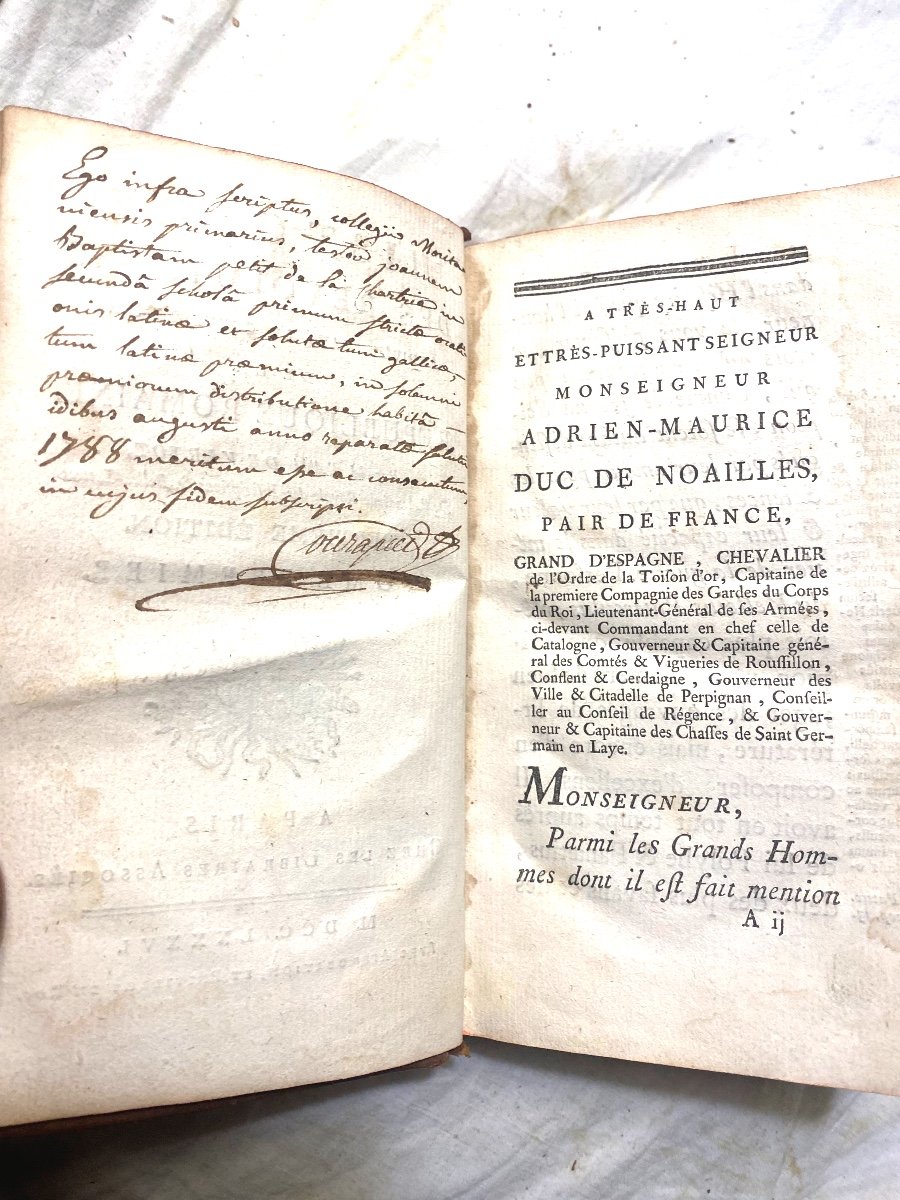 Ego infra scriptus, collegii Morita
niensis primarius, testor joannem
Baptistam petit de la Chartrie in
secundâ scholâ primum strictæ orati
onis latinæ et solutæ tum gallicæ,
tum latinæ præmium, in solemni
præmiorum distributione habitâ
idibus augusti anno reparatæ salutis
1788 meritum esse ac consecutum,
in cujus fidem subscripsi.
A TRÈS-HAUT
ET TRÈS-PUISSANT SEIGNEUR
MONSEIGNEUR
ADRIEN-MAURICE
DUC DE NOAILLES,
PAIR DE FRANCE,
GRAND D'ESPAGNE, CHEVALIER
de l'Ordre de la Toiſon d'or, Capitaine de
la premiere Compagnie des Gardes du Corps
du Roi, Lieutenant-Général de ſes Armées,
ci-devant Commandant en chef celle de
Catalogne, Gouverneur & Capitaine géné-
ral des Comtés & Vigueries de Rouſſillon,
Conflent & Cerdaigne, Gouverneur des
Ville & Citadelle de Perpignan, Conſeil-
ler au Conſeil de Régence, & Gouver-
neur & Capitaine des Chaſſes de Saint Ger-
main en Laye.
MONSEIGNEUR,
Parmi les Grands Hom-
mes dont il eſt fait mention
A ij